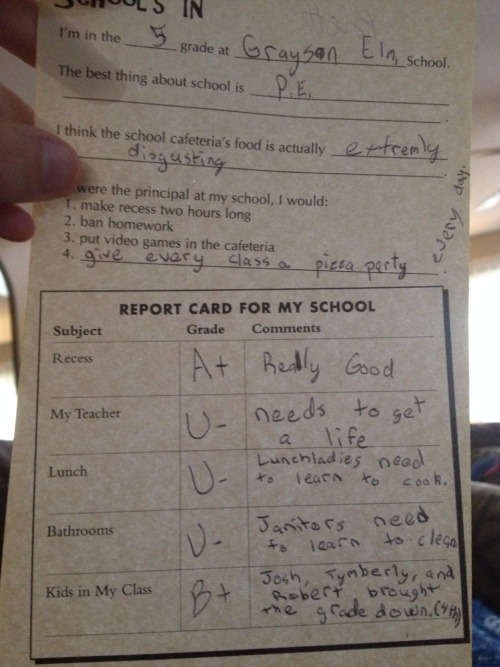 SCHOOL'S IN
I'm in the 5 grade at Grayson Elm, School.
The best thing about school is P.E.
I think the school cafeteria's food is actually extremly
disgusting
were the principal at my school, I would:
1. make recess two hours long
2. ban homework
3. put video games in the cafeteria
4. give every class a pizza party every day.
REPORT CARD FOR MY SCHOOL
Subject Grade Comments
Recess A+ Really Good
My Teacher U- needs to get
a life
Lunch U- Lunchladies need
to learn to cook.
Bathrooms U- Janitors need
to learn to clean
Kids in My Class B+ Josh, Tymberly, and
Robert brought
the grade down. (4th)